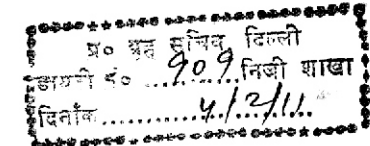 प्र० गृह सचिव दिल्ली
डायरी सं० 909 निजी शाखा
दिनाँक 4/2/11